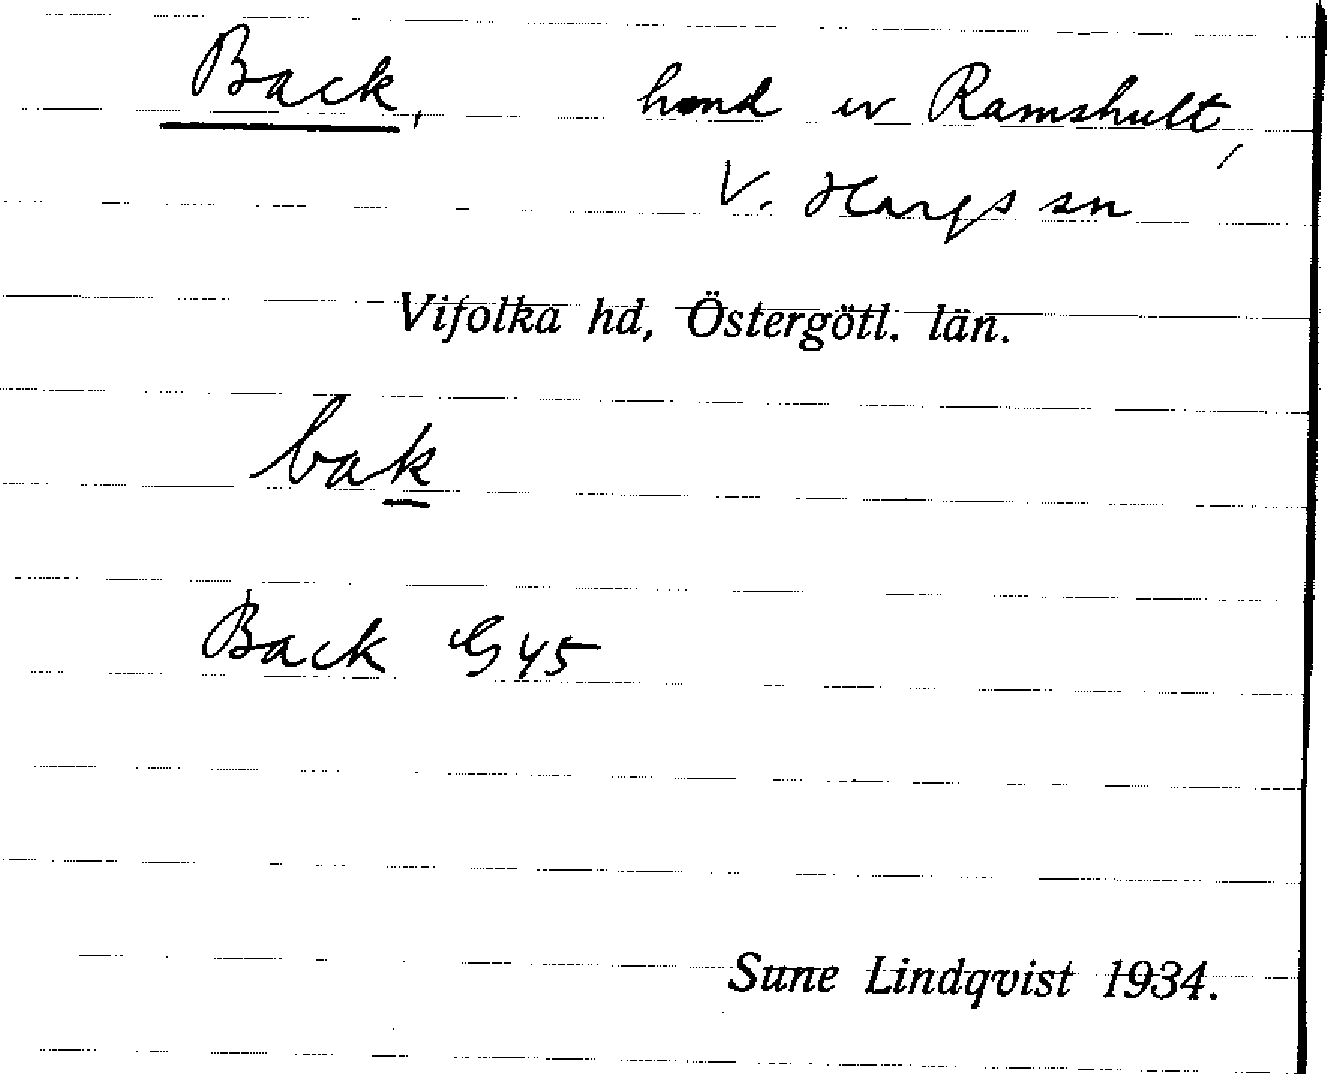 Back, hmd u Ramshult,
V. Hargs sn
Vifolka hd, Östergötl. län.
bak
Back G 45
Sune Lindqvist 1934.